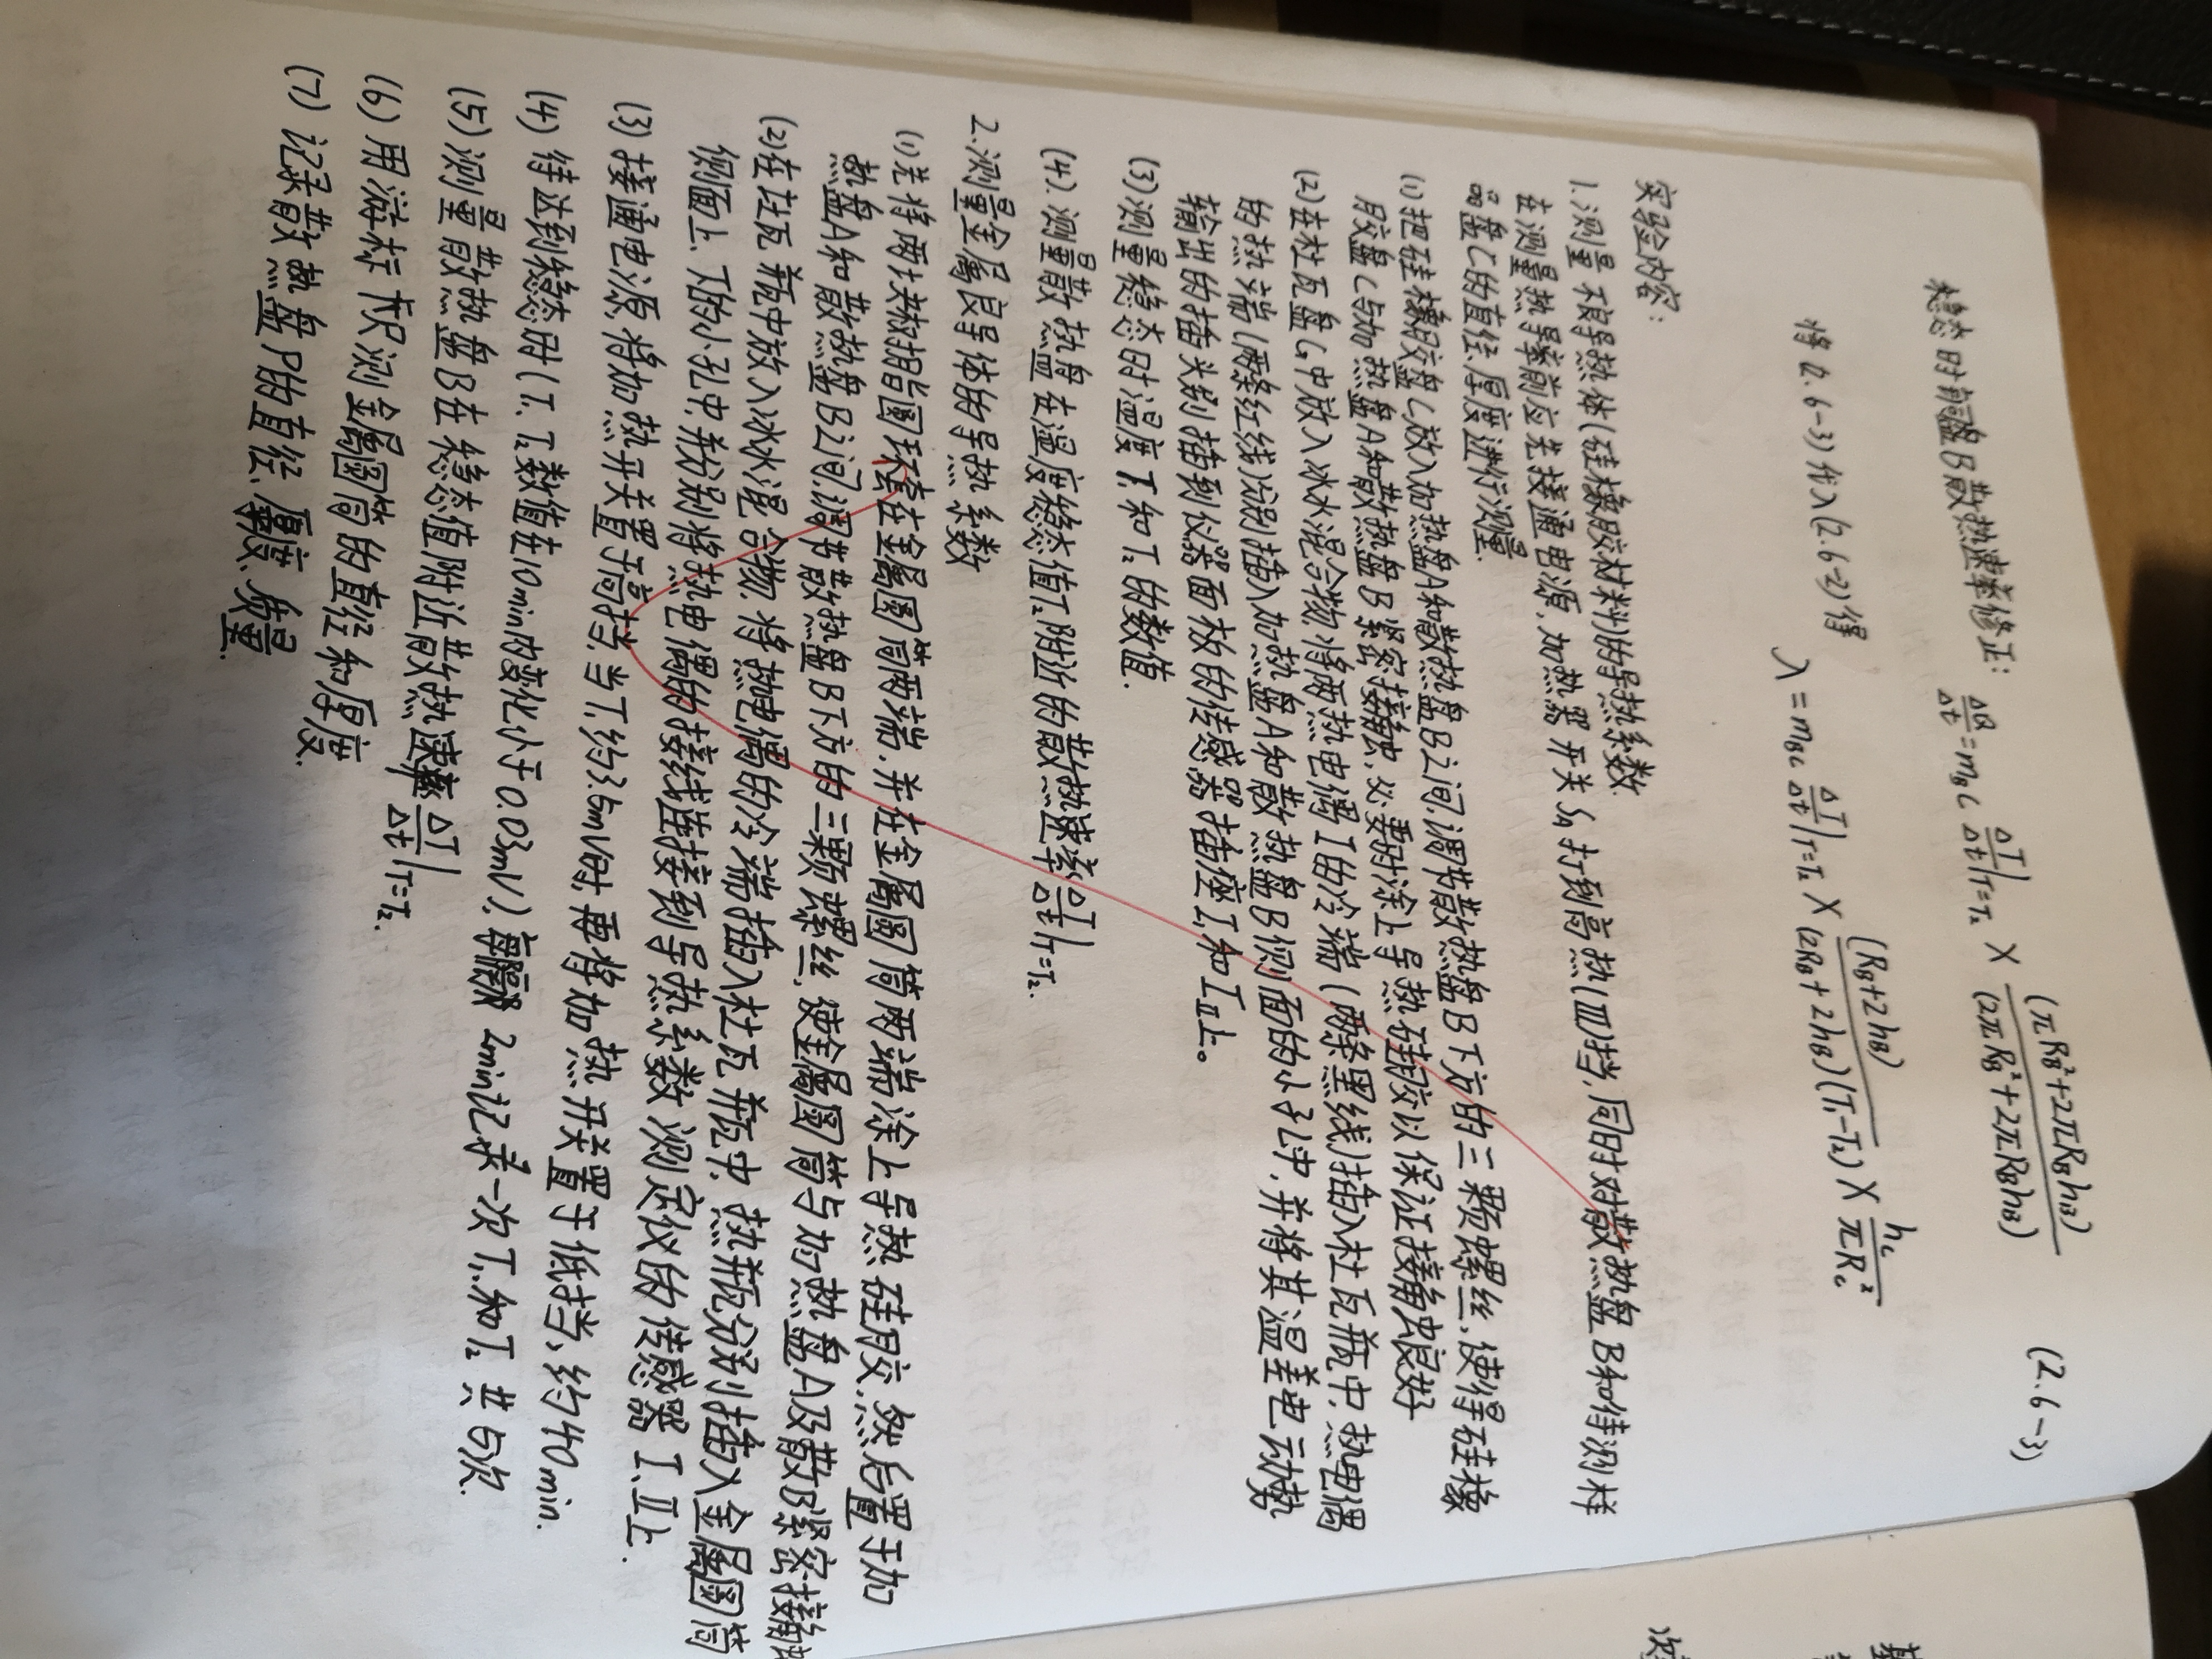 稳态时铜盘B散热速率修正: ΔQ/Δt = m_B c ΔT/Δt|T=T₂ × (πR_B²+2πR_Bh_B)/(2πR_B²+2πR_Bh_B) (2.6-3)
将(2.6-3)代入(2.6-2)得
λ = m_Bc ΔT/Δt|T=T₂ × (R_B+2h_B)/(2R_B+2h_B)(T₁-T₂) × h_c/πR_c²
实验内容:
1. 测量不良导热体(硅橡胶材料)的导热系数
在测量热导率前应先接通电源,加热器开关S₁打到高热(Ⅲ)挡,同时对散热盘B和待测样
品盘C的直径、厚度进行测量.
(1) 把硅橡胶盘C放入加热盘A和散热盘B之间,调节散热盘B下方的三颗螺丝,使得硅橡
胶盘C与加热盘A和散热盘B紧密接触,必要时涂上导热硅胶以保证接触良好
(2) 在杜瓦盘G中放入冰水混合物,将两热电偶I的冷端(两条黑线)插入杜瓦瓶中,热电偶
的热端(两条红线)分别插入加热盘A和散热盘B侧面的小孔中,并将其温差电动势
输出的插头别插到仪器面板的传感器插座I和II上。
(3) 测量稳态时温度T₁和T₂的数值.
(4). 测量散热盘在温度稳态值T₂附近的散热速率ΔT/Δt|T=T₂.
2. 测量金属良导体的导热系数
(1) 先将两块树脂圆环套在金属圆筒两端,并在金属圆筒两端涂上导热硅胶,然后置于加
热盘A和散热盘B之间,调节散热盘B下方的三颗螺丝,使金属圆筒与加热盘A及散B紧密接触
(2) 在杜瓦瓶中放入冰水混合物,将热电偶的冷端插入杜瓦瓶中,热瓶分别插入金属圆筒
侧面上、下的小孔中,并分别将热电偶的接线连接到导热系数测定仪的传感器I、II上.
(3) 接通电源,将加热开关置于高挡,当T₁约3.5mV时,再将加热开关置于低挡,约40min.
(4) 待达到稳态时(T₁、T₂数值在10min内变化小于0.03mV).每隔2min记录一次T₁和T₂共5次.
(5) 测量散热盘B在稳态值附近散热速率ΔT/Δt|T=T₂.
(6) 用游标卡尺测金属圆筒的直径和厚度.
(7) 记录散热盘P的直径、厚度、质量.